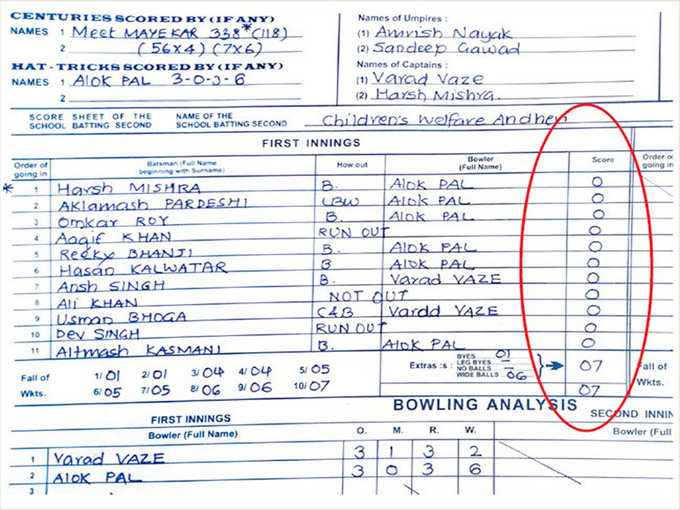 CENTURIES SCORED BY (IF ANY)
NAMES 1 Meet MAYEKAR 338* (118)
2 (56x4) (7x6)
HAT-TRICKS SCORED BY (IF ANY)
NAMES 1 Alok PAL 3-0-3-6
2
Names of Umpires :
(1) Amrish Nayak
(2) Sandeep Gawad
Names of Captains :
(1) Varad Vaze
(2) Harsh Mishra.
SCORE SHEET OF THE SCHOOL BATTING SECOND
NAME OF THE SCHOOL BATTING SECOND
Children's Welfare Andheri
FIRST INNINGS
Order of going in Batsman (Full Name beginning with Surname) How out Bowler (Full Name) Score Order of going in
* 1 Harsh MISHRA B. Alok PAL 0
2 Aklamash PARDESHI LBW Alok PAL 0
3 Omkar ROY B. Alok PAL 0
4 Aaqif KHAN RUN OUT 0
5 Recky BHANJI B. Alok PAL 0
6 Hasan KALWATAR B Alok PAL 0
7 Ansh SINGH B. Varad VAZE 0
8 Ali KHAN NOT OUT 0
9 Usman BHOGA C&B Vardd VAZE 0
10 Dev SINGH RUN OUT 0
11 Altmash KASMANI B. Alok PAL 0
Fall of Wkts. 1/01 2/01 3/04 4/04 5/05
6/05 7/05 8/06 9/06 10/07
Extras :s BYES 01
LEG BYES
NO BALLS
WIDE BALLS 06
07
07
Fall of Wkts.
BOWLING ANALYSIS
FIRST INNINGS
SECOND INNIN
Bowler (Full Name) O. M. R. W. Bowler (Full
1 Varad VAZE 3 1 3 2
2 Alok PAL 3 0 3 6
3